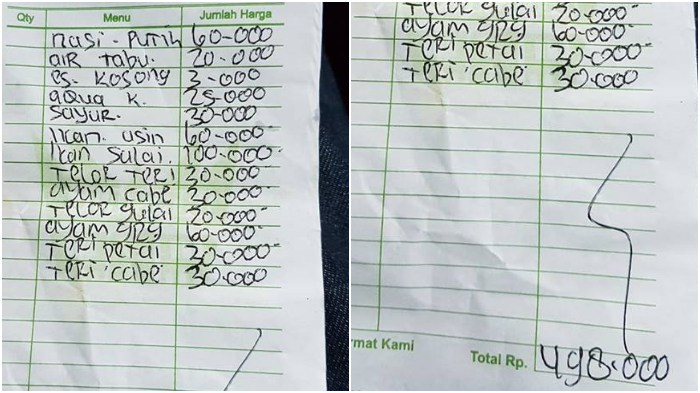 Qty Menu Jumlah Harga
nasi - Putih 60-000
aiR tabu. 20-000
es. kosong 3-000
aqua k. 25-000
Sayur. 30-000
Ikan. asin 60-000
Ikan Sulai. 100-000
Telor Teri 30-000
ayam cabe 30-000
Telor gulai 20-000
ayam grg 60-000
Teri petai 30-000
Teri cabe 30-000
Telor gulai 20-000
ayam grg 60-000
Teri petai 30-000
Teri cabe 30-000
rmat Kami
Total Rp. 498.000